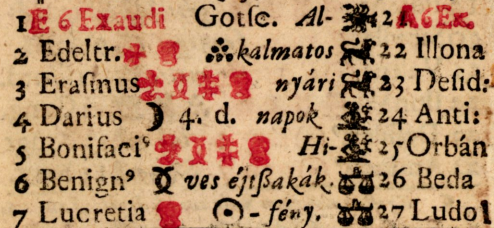 1 E 6 Exaudi Gotſc. Al- 21 A 6 Ex.
2 Edeltr. kalmatos 22 Illona
3 Eraſmus nyári 23 Deſid:
4 Darius ☽ 4. d. napok 24 Anti:
5 Bonifaciꝰ Hi- 25 Orbán
6 Benignꝰ ves éjtßakák. 26 Beda
7 Lucretia ☉ - fény. 27 Ludo